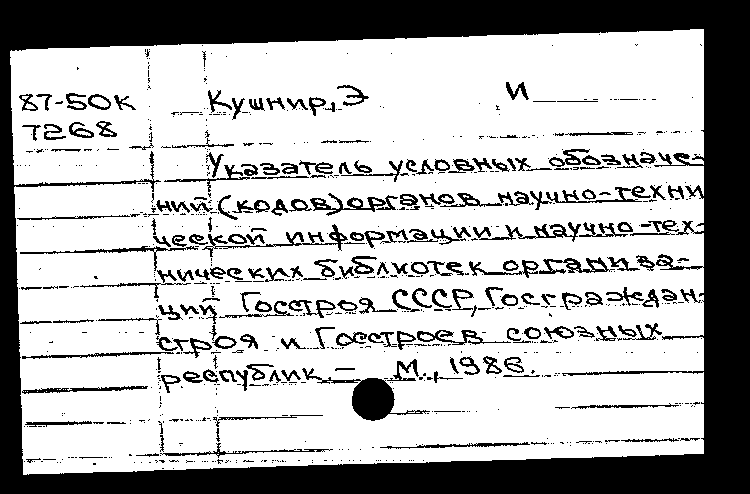 87-50к Кушнир, Э И
7268
Указатель условных обозначе-
ний (кодов) органов научно-техни
ческой информации и научно-тех-
нических библиотек организа-
ций Госстроя СССР, Госграждан-
строя и Госстроев союзных
республик. - М., 1986.